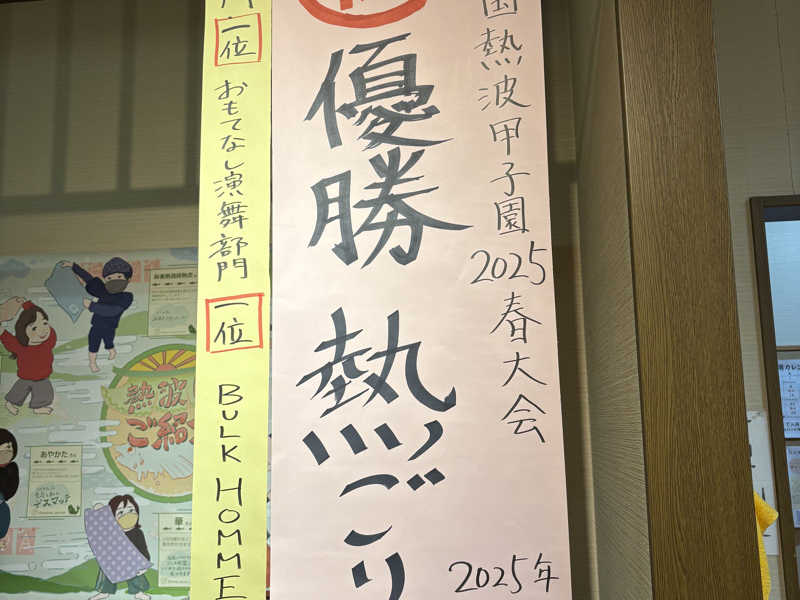 国熱波甲子園2025春大会
優勝 熱ごり
2025年
一位
おもてなし演舞部門
一位
BULK HOMME
熱波
ご紹
あやかたさん
デスマッチ
華